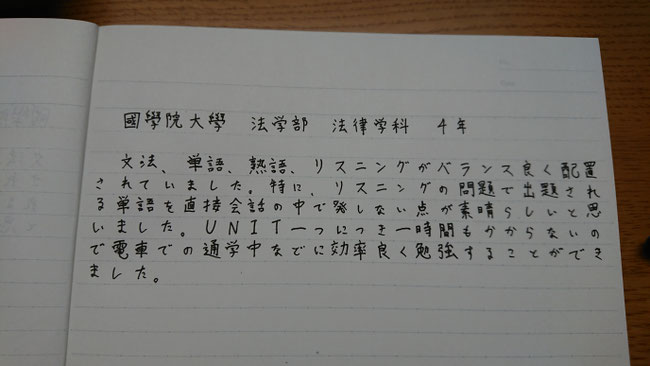 國學院大學 法学部 法律学科 4年
文法、単語、熟語、リスニングがバランス良く配置
されていました。特に、リスニングの問題で出題され
る単語を直接会話の中で発しない点が素晴らしいと思
いました。UNIT一つにつき一時間もかからないの
で電車での通学中などに効率良く勉強することができ
ました。